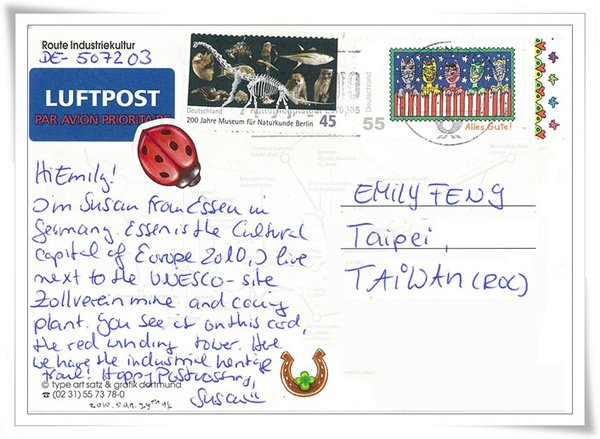 Route Industriekultur
DE-507203
LUFTPOST
PAR AVION PRIORITAIRE
Deutschland
200 Jahre Museum für Naturkunde Berlin
45
55
Deutschland
Alles Gute!
Hi Emily!
I'm Susan from Essen in
Germany. Essen is the Cultural
capital of Europe 2010, I live
next to the UNESCO-site
Zollverein mine and coking
plant. You see it on this card,
the red winding tower. Here
we have the industrial heritage
trail! Happy Postcrossing,
Susan
© type art satz & grafik dortmund
(02 31) 55 73 78-0
EMILY FENG
Taipei,
TAIWAN (ROC)